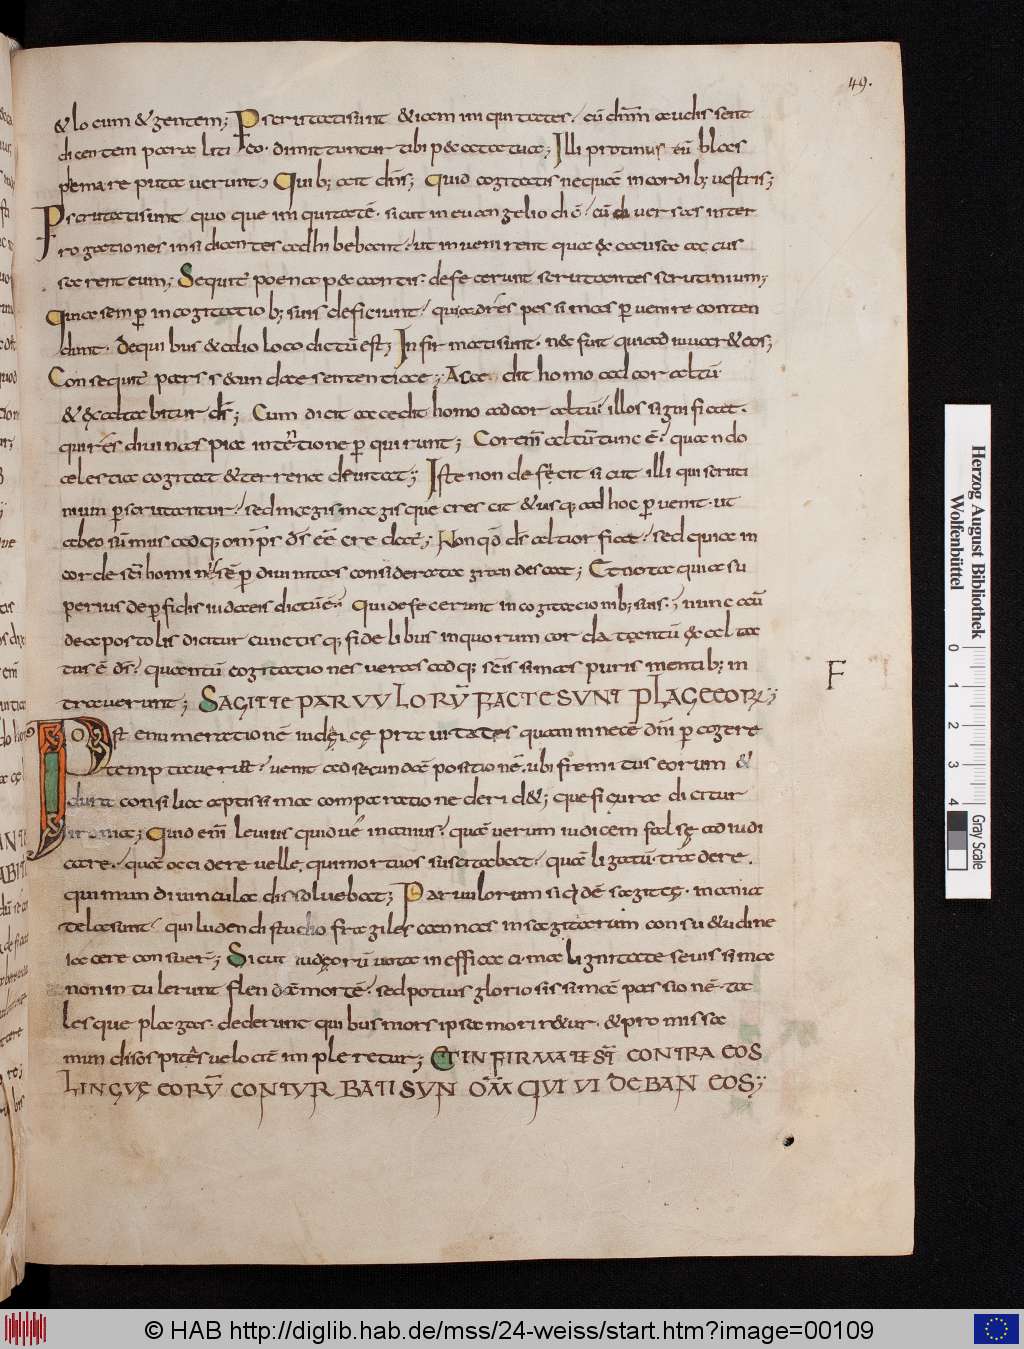 49.
& locum & gentem; Pscrutatisunt & iam iniquitates. cū dnm audissent
dicentem paralitico. dimittuntur tibi peccata tua; Illi protinus eū blas
phemare putaverunt, Quib; ait dns; Quid cogitatis nequā incordib; vestris;
Pscrutatisunt quoque iniquitatē. sicut in euangelio dic̄. cū diversas inter
rogationes insidiantes adhibebant. ut invenirent quaę accusa ac cus
sarent eum; Sequit poena peccantis. defecerunt scrutantes scrutinium;
Quia semp in cogitatiob; suis deficiunt. quia adres pessimas pervenire conten
dunt. dequibus & alio loco dictū est; Infirmatisunt. nec fuit qui adiuuar& eos;
Consequit pars secundae sententiae; Accedit homo ad cor altū
& exaltabitur ds; Cum dicit accedit homo ad cor altū. illos significat.
qui res divinas pia intentione perquirunt; Cor enī altū tunc ē. quando
celestia cogitat & terrena devitat; Iste non defecit sicut illi qui scruti
nium perscrutantur. sed magis magisque crescit & usq; ad hoc pervenit. ut
ab eo summus adq; omps ds eē credat; Non qd ds altior fiat. sed quia in
corde sci hominis sēp divinitas considerata grandescat; Et nota quia su
perius de perfidis iudaeis dictū ē. qui defecerunt in cogitationib; suis. nunc aū
de apostolis dicitur cunctisq; fidelibus in quorum cor da tantū exalta
tus ē ds. quantū cogitationes veras adq; scis simas puris mentib; in
traverunt; SAGITTE PARVULORŪ FACTE SUNT PLAGE EORŪ;
F
Post enumerationē iudaicę pravitatis quam in necē dni peragere
temptaverūt. venit ad secundā positionē. ubi fremitus eorum &
dura consilia aptissima comparatione derid&; que figura dicitur
ironia; Quid enī levius quidve inanius. quā verum iudicem falsę ad iudi
care. quā occidere velle, qui mortuos suscitabat. quā ligatū tradere.
qui mundi vincula dissolvebat; Parvulorum siqdē sagitę. inania
tela sunt. qui ludendi studio fragiles cannas in sagitarum consu&udine
iacere consuer̄; Sicut iudęorū vota inefficacima lignitate sevissima
non intulerunt flendā mortē. sed potius gloriosissimā passionē. ta
lesque plagas. dederunt quibus mors ipsa morir&ur. & promissa
mundi sospitas velociē impleretur; ET INFIRMATE ST̄ CONTRA EOS
LINGUĘ EORŪ CONTURBATI SUN OM̄S QUI VIDEBAN EOS;
Herzog August Bibliothek
Wolfenbüttel
0 1 2 3 4
Gray Scale
© HAB http://diglib.hab.de/mss/24-weiss/start.htm?image=00109